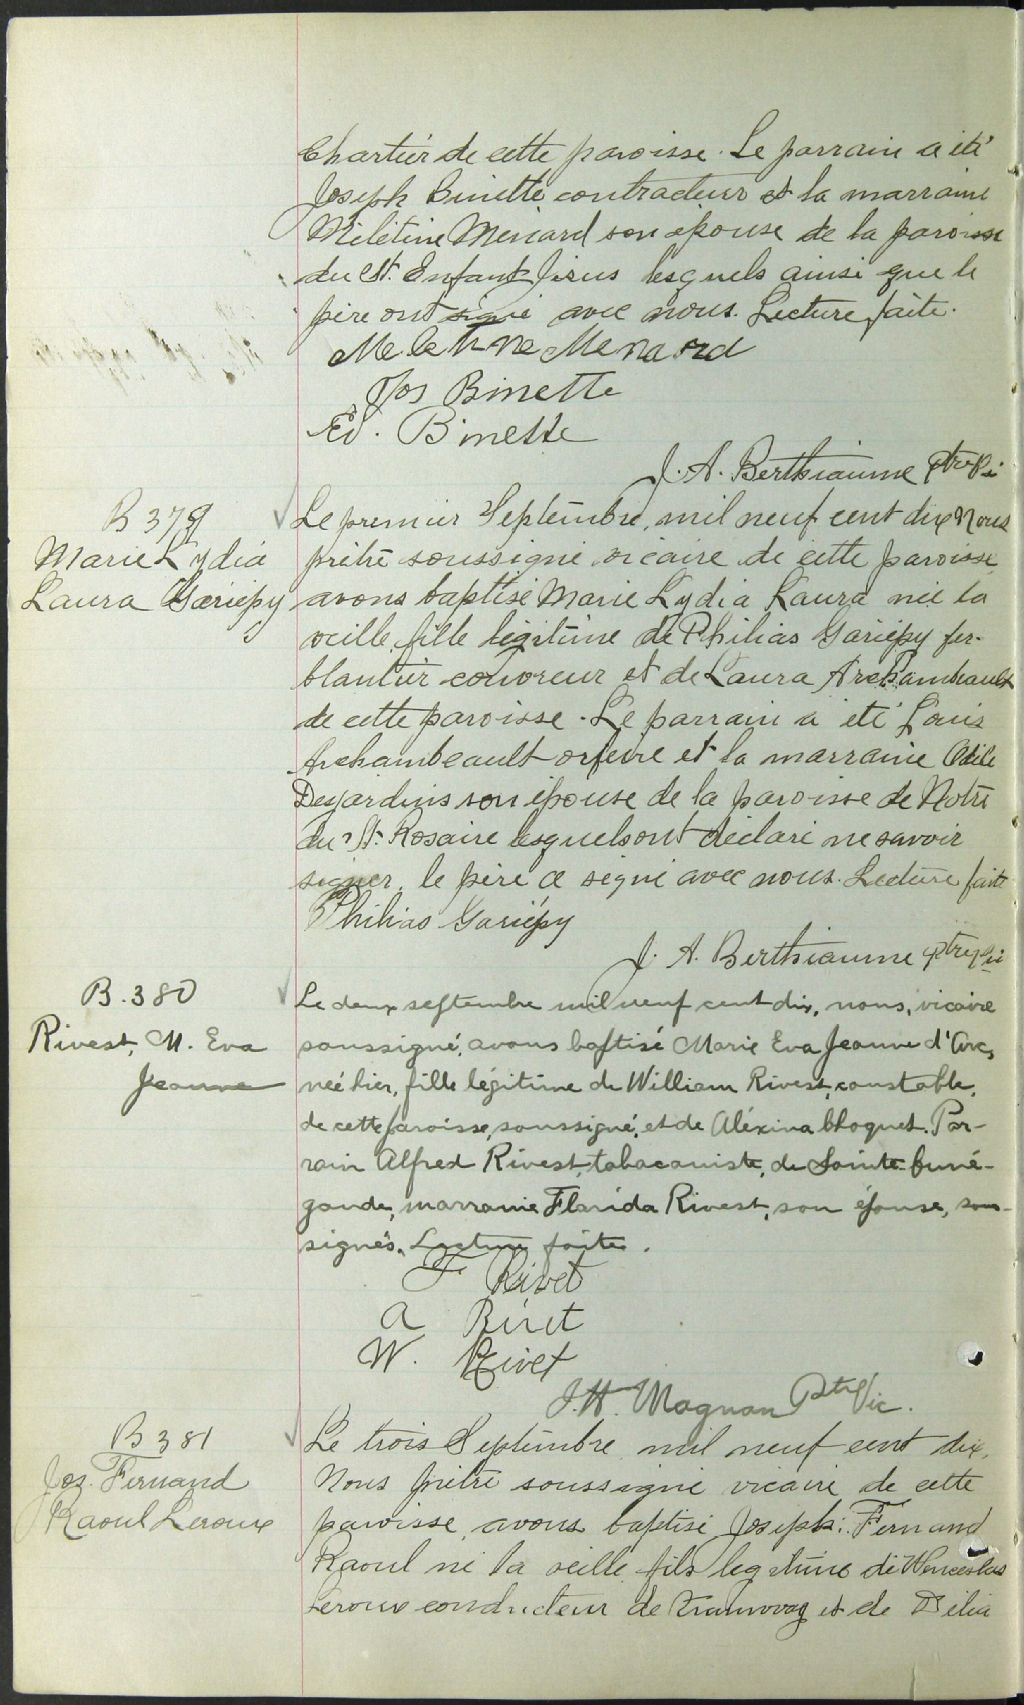 Chartier de cette paroisse. Le parrain a été
Joseph Binette contracteur et la marraine
Mélétine Ménard son épouse de la paroisse
du St. Enfant Jésus lesquels ainsi que le
père ont signé avec nous. Lecture faite.
Meletine Menard
Jos Binette
Ed. Binette
J. A. Berthiaume ptre
B 379
Marie Lydia
Laura Gariépy
Le premier Septembre, mil neuf cent dix Nous
prêtre soussigné vicaire de cette paroisse
avons baptisé Marie Lydia Laura née la
veille, fille légitime de Philias Gariépy fer-
blantier couvreur et de Laura Archambault
de cette paroisse. Le parrain a été Louis
Archambeault orfèvre et la marraine Odile
Desjardins son épouse de la paroisse de Notre
du St. Rosaire lesquels ont déclaré ne savoir
signer, le père a signé avec nous. Lecture faite
Philias Gariépy
J. A. Berthiaume ptre
B. 380
Rivest, M. Eva
Jeanne
Le deux septembre mil neuf cent dix, nous, vicaire
soussigné, avons baptisé Marie Eva Jeanne d'Arc,
née hier, fille légitime de William Rivest, constable,
de cette paroisse, soussigné, et de Aléxina Choquet. Par-
rain Alfred Rivest, tabaconiste, de Sainte-Cuné-
gonde, marraine Florida Rivest, son épouse, sous-
signés. Lecture faite.
F. Rivet
A Rivet
W. Rivet
J. H. Magnan Ptre Vic.
B 381
Joz. Fernand
Raoul Leroux
Le trois Septembre mil neuf cent dix,
Nous prêtre soussigné vicaire de cette
paroisse, avons baptisé Joseph: Fernand
Raoul né la veille, fils légitime de Wenceslas
Leroux conducteur de tramway et de Délia